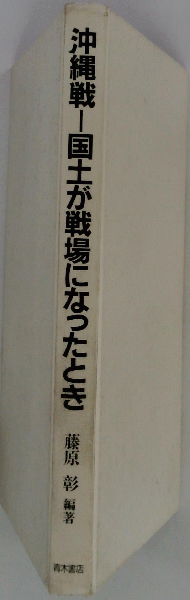 沖縄戦―国土が戦場になったとき
藤原 彰 編著
青木書店